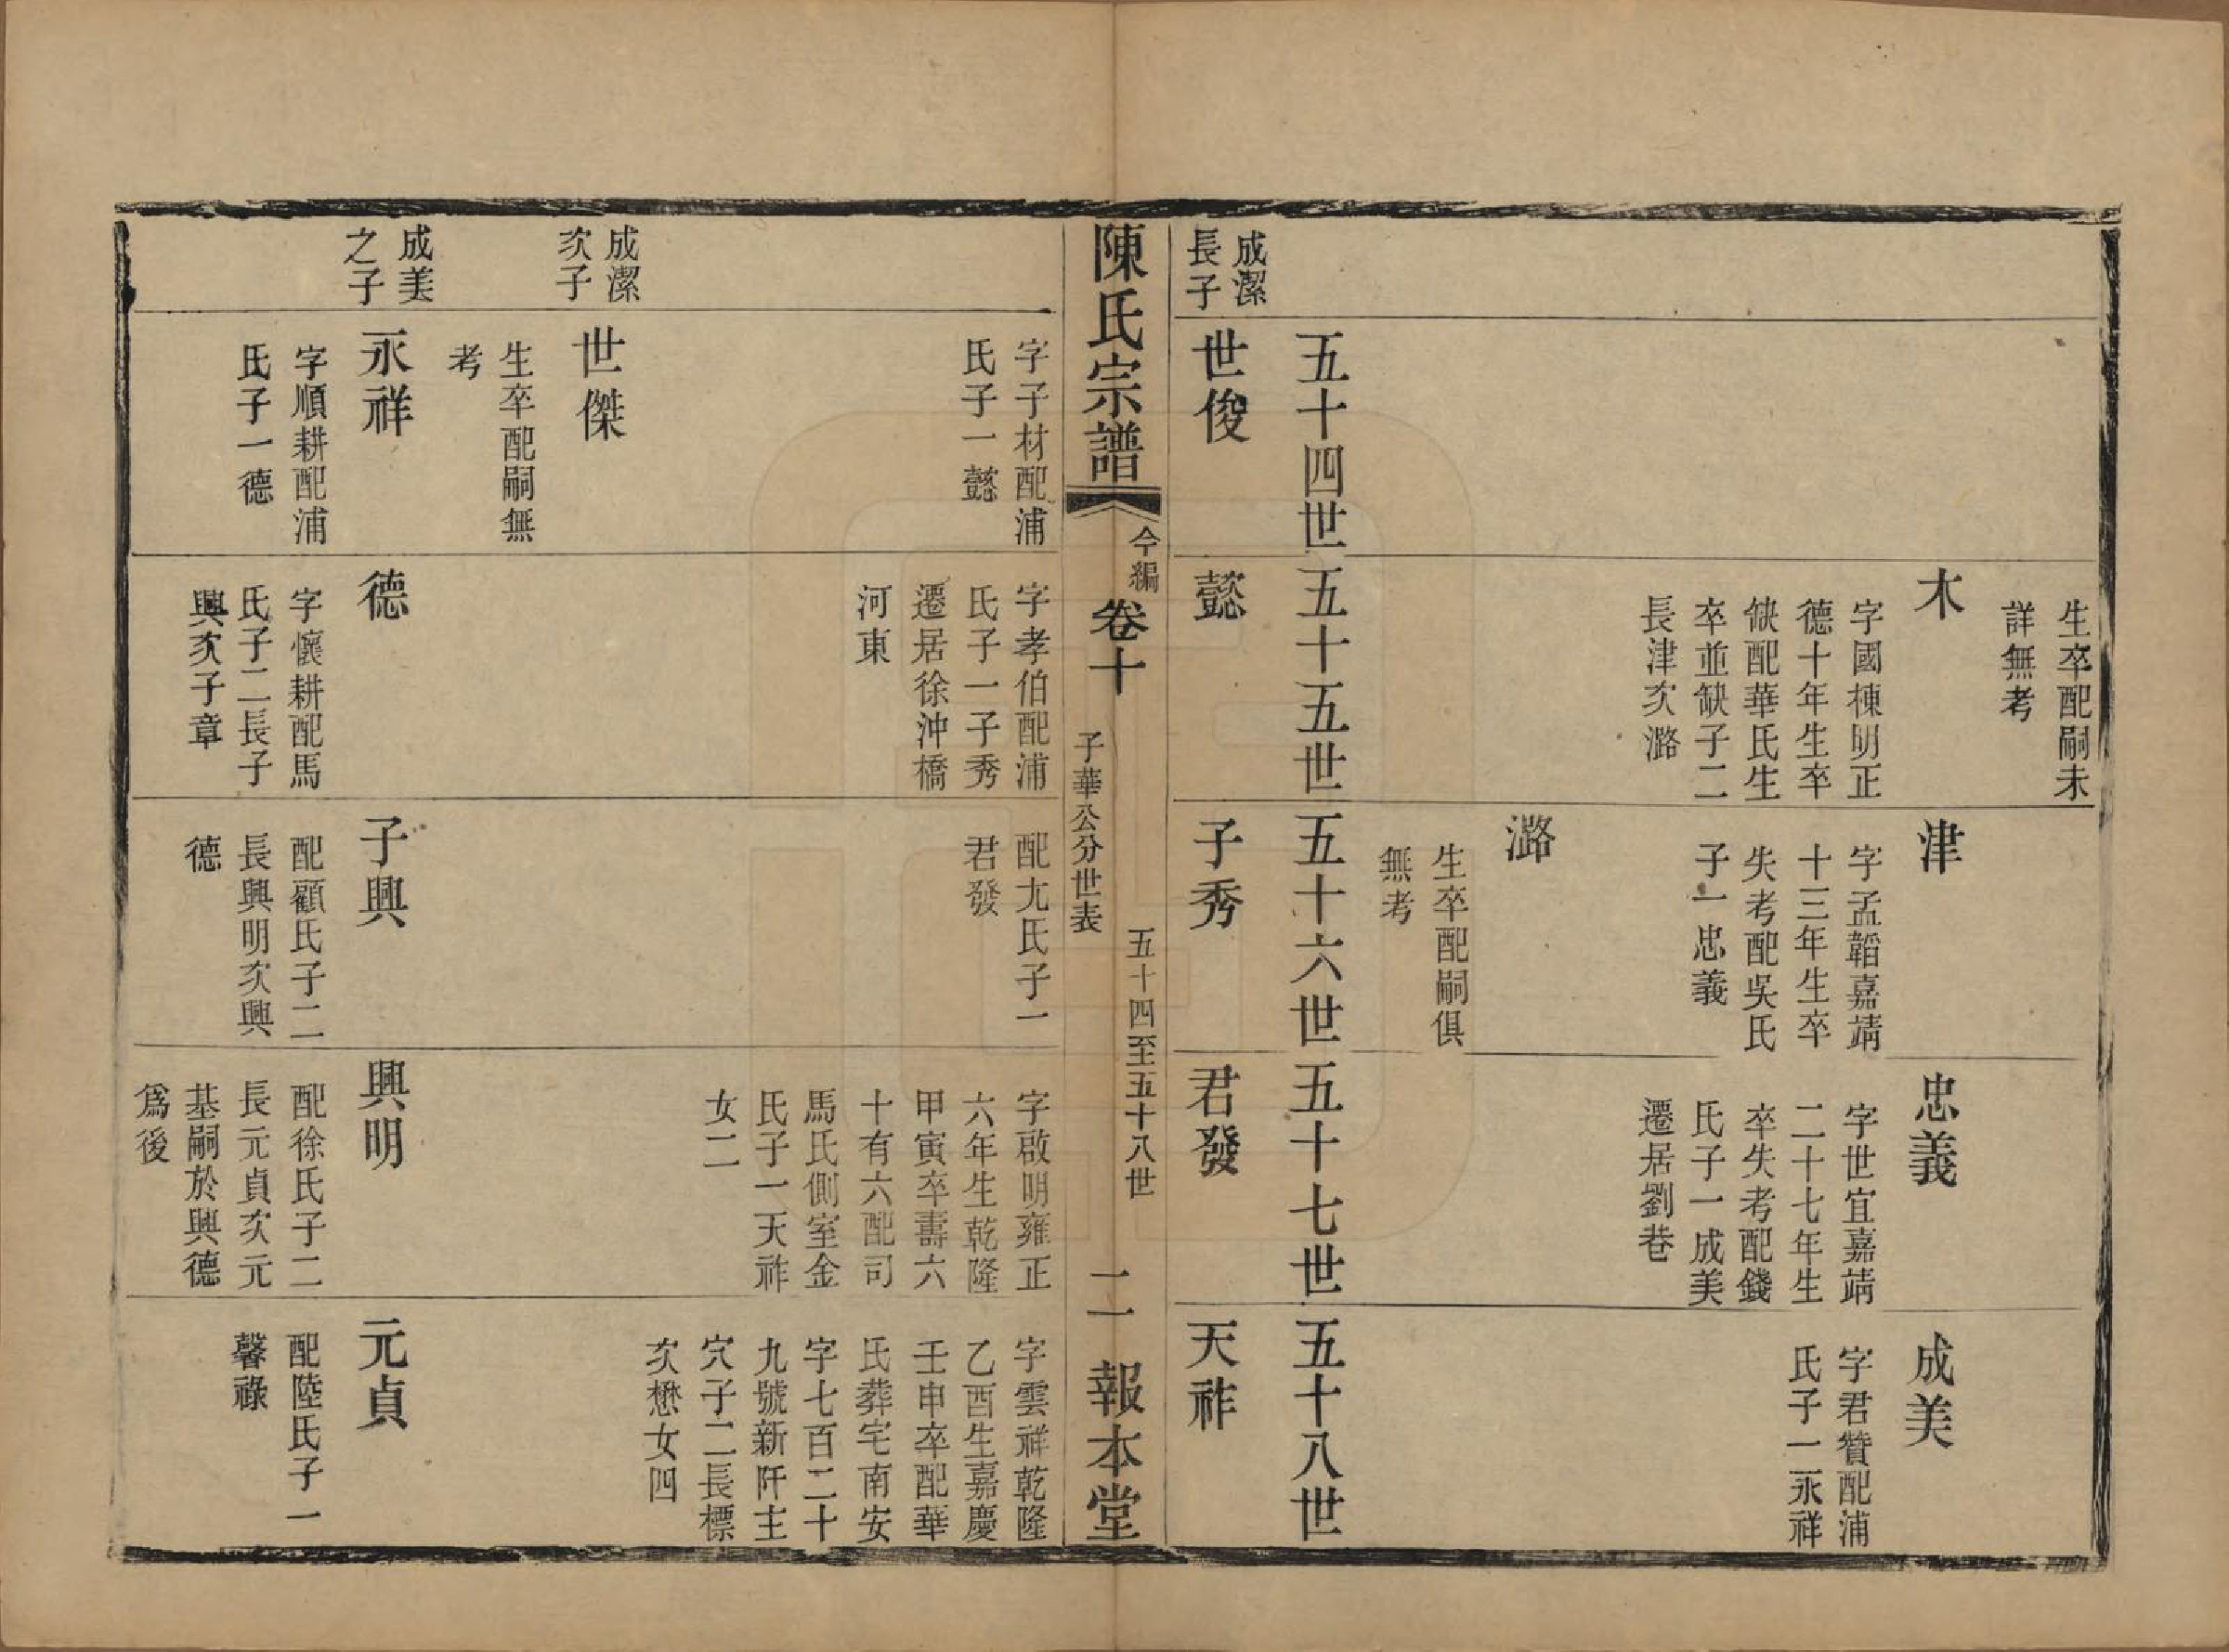 生卒配嗣未
詳無考
木
字國棟明正
德十年生卒
缺配華氏生
卒並缺子二
長津次潞
津
字孟韜嘉靖
十三年生卒
失考配吳氏
子一忠義
潞
生卒配嗣俱
無考
忠義
字世宜嘉靖
二十七年生
卒失考配錢
氏子一成美
遷居劉巷
成美
字君贊配浦
氏子一永祥
五十四世
五十五世
五十六世
五十七世
五十八世
成潔
長子
世俊
懿
子秀
君發
天祚
陳氏宗譜
今編
卷十
子華公分世表
五十四至五十八世
二
報本堂
字子材配浦
氏子一懿
字孝伯配浦
氏子一子秀
遷居徐沖橋
河東
配尤氏子一
君發
字啟明雍正
六年生乾隆
甲寅卒壽六
十有六配司
馬氏側室金
氏子一天祚
女二
字雲祥乾隆
乙酉生嘉慶
壬申卒配華
氏葬宅南安
字七百二十
九號新阡主
穴子二長標
次懋女四
成潔
次子
世傑
生卒配嗣無
考
成美
之子
永祥
字順耕配浦
氏子一德
德
字懷耕配馬
氏子二長子
興次子章
子興
配顧氏子二
長興明次興
德
興明
配徐氏子二
長元貞次元
基嗣於興德
爲後
元貞
配陸氏子一
馨祿